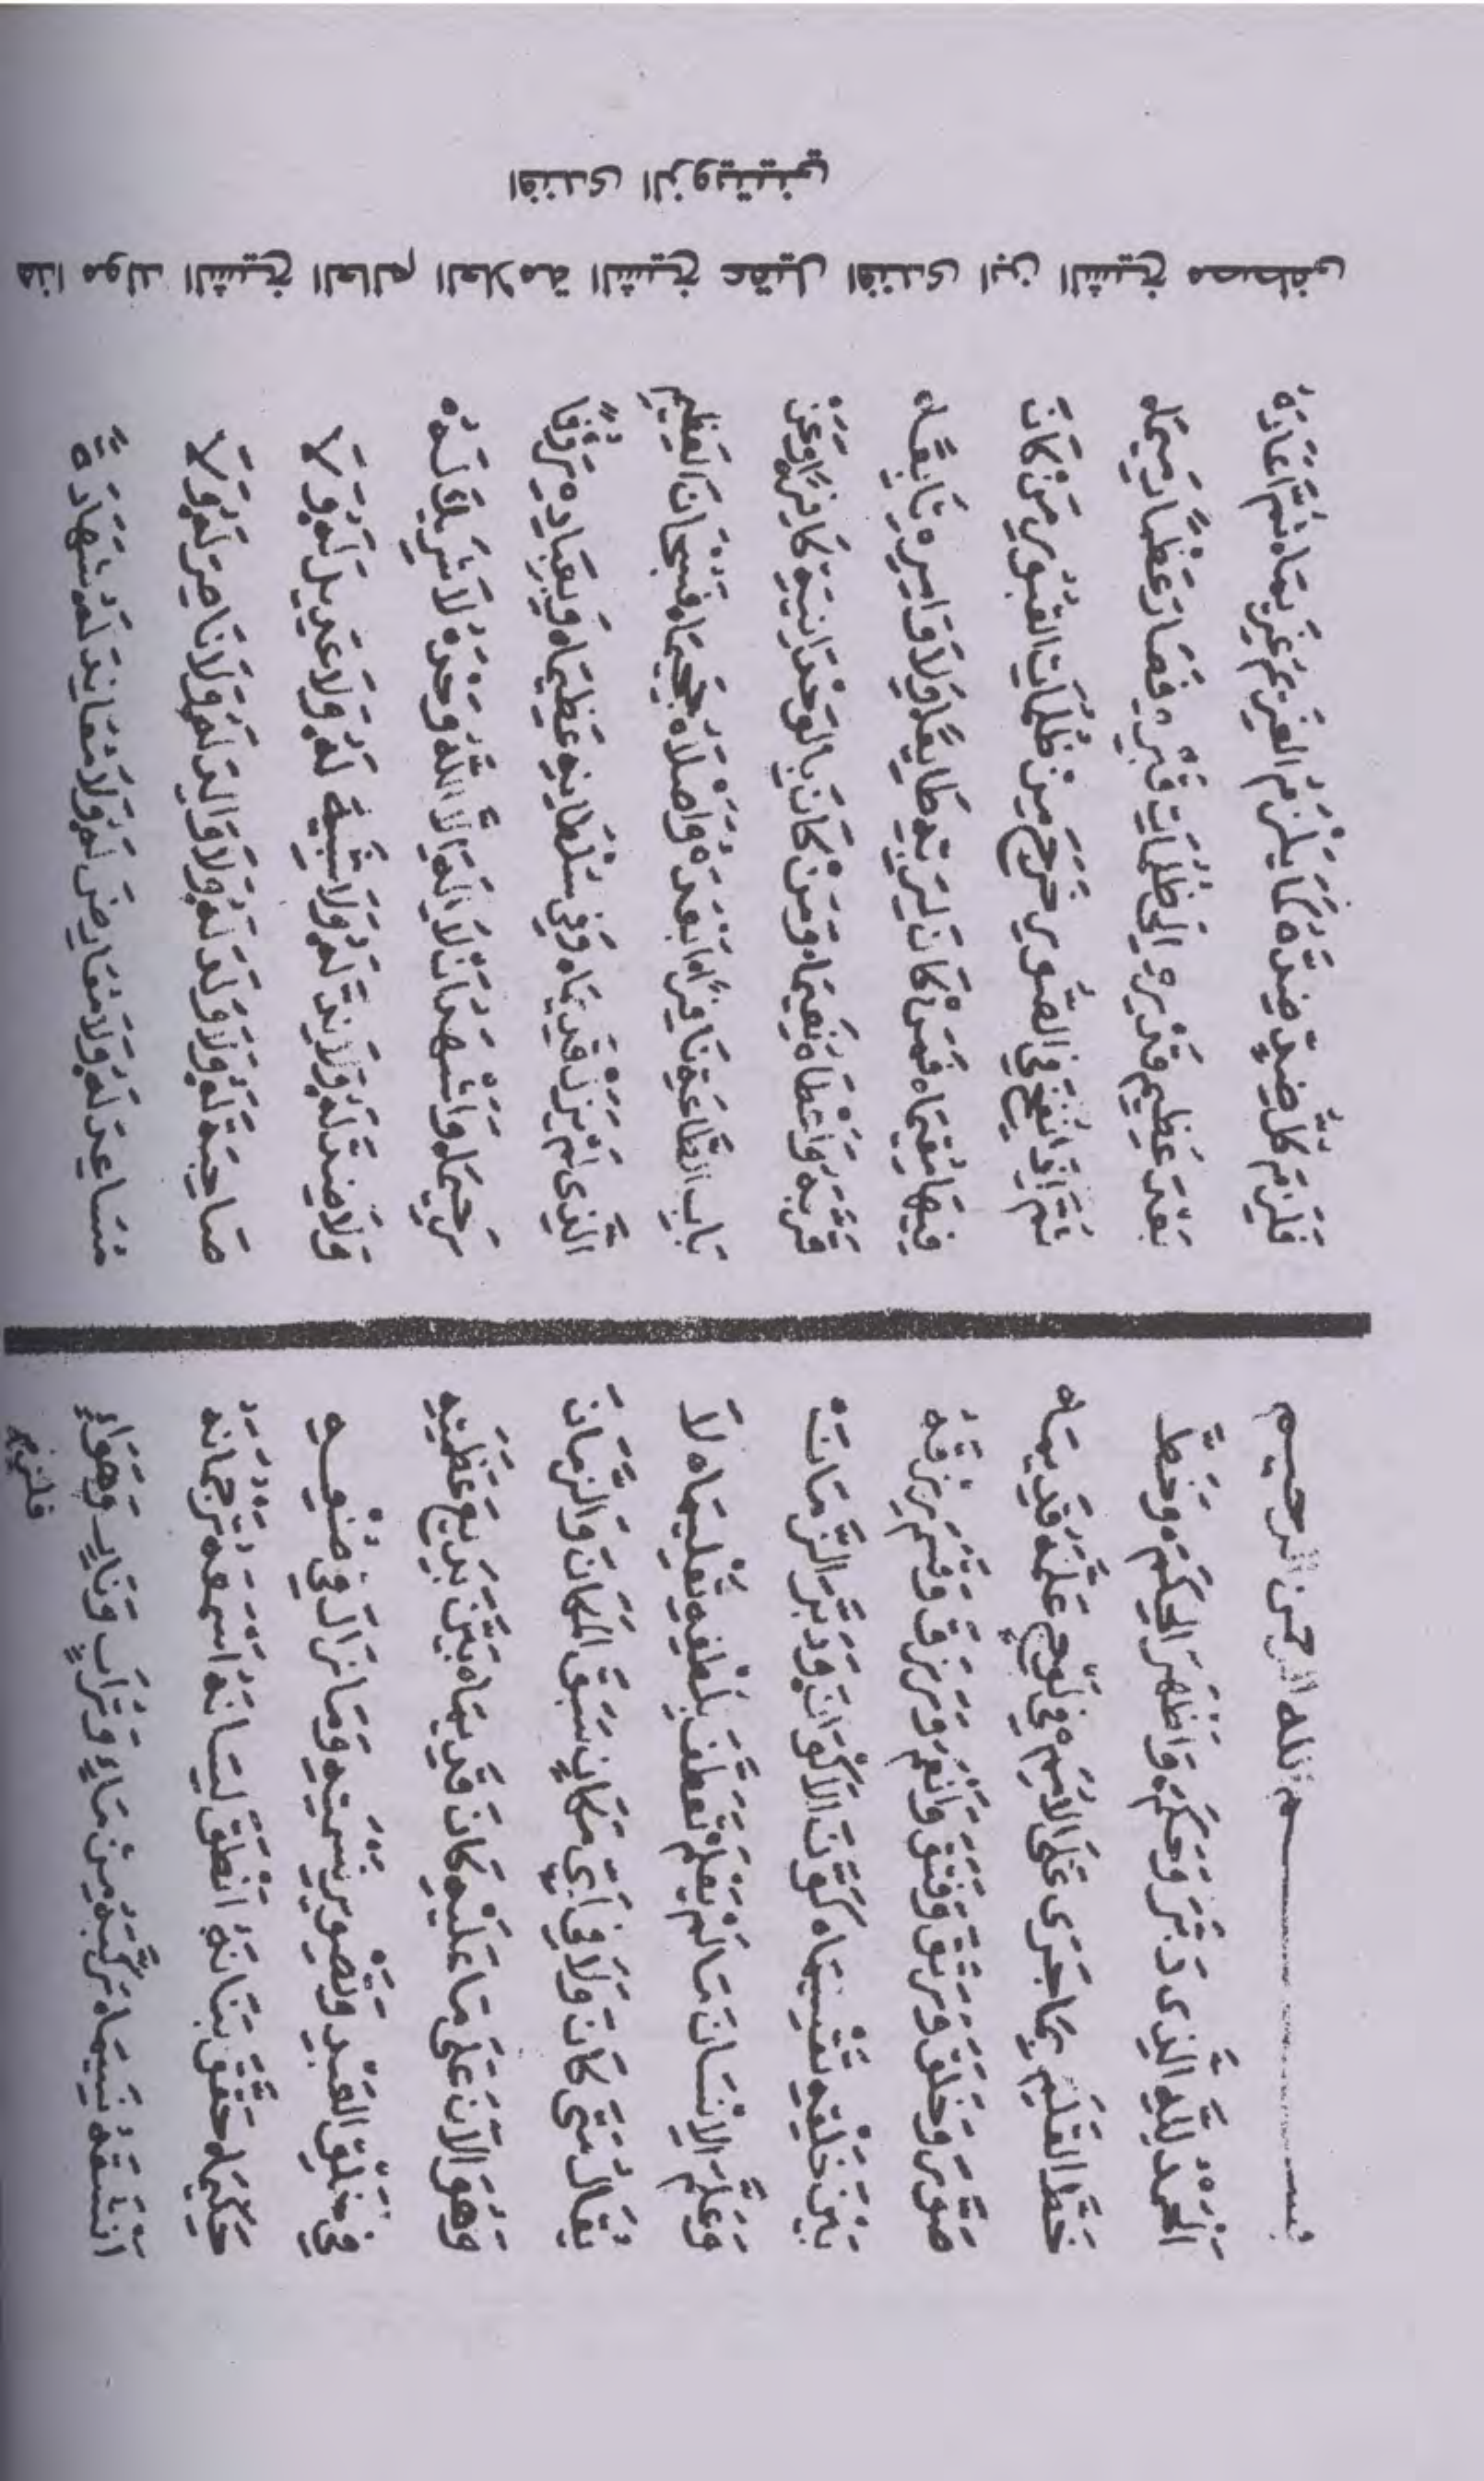 هذا مولد الشيخ العالم العلامة الشيخ عقيل افندى ابن الشيخ مصطفى
افندى الزويتيني
بسم الله الرحمن الرحيم
اَلْحَمْدُ لِلَّهِ الَّذِى دَبَّرَ وَحَكَمَ ٥ وَاَظْهَرَ الْحِكَمَ ٥ وَخَطَّ
خَطَّ الْقَلَمِ بِمَا جَرَى عَلَى الْاُمَمِ ٥ فِى لَوْحٍ عِلْمُهُ قَدِيمًا ٥
صَوَّرَ وَخَلَقَ وَرَتَقَ وَفَتَقَ وَاَنْعَمَ وَرَزَقَ وَقَسَمَ رِزْقَهُ
بَيْنَ خَلْقِهِ تَقْسِيمًا ٥ كَوَّنَ الْاَكْوَانَ ٥ وَدَبَّرَ الزَّمَانَ
وَعَلَّمَ الْاِنْسَانَ مَا لَمْ يَعْلَمْ تَعَطَّفَ بِلُطْفِهِ تَعْلِيمًا ٥ لَا
يُقَالُ مَتَى كَانَ وَلَا فِى اَىِّ مَكَانٍ سَبَقَ الْمَكَانَ وَالزَّمَانَ
وَهُوَ الْاٰنَ عَلَى مَا عَلَيْهِ كَانَ قَدِيمًا ٥ بَيَّنَ بَدِيعَ عَظَمَتِهِ
فِى خَلْقِ الْعَبْدِ وَتَصْوِيرِ نِسْمَتِهِ وَمَا زَالَ فِى صُنْعِهِ
حَكِيمًا ٥ حَقَّقَ بَنَانَهُ اَنْطَقَ لِسَانَهُ اَسْمَعَهُ تَرْجُمَانَهُ
اَنْشَقَهُ نَسِيمًا ٥ رَكَّبَهُ مِنْ مَاءٍ وَتُرَابٍ وَنَارٍ وَهَوَاءٍ
فلزم
فَلَزِمَ كُلُّ ضِدٍّ ضِدَّهُ كَمَا يَلْزَمُ الْغَرِيمُ غَرِيمًا ٥ ثُمَّ اَعَادَهُ
بَعْدَ عَظِيمِ قَدْرِهِ اِلَى ظُلُمَاتِ قَبْرِهِ فَصَارَ عَظْمًا رَمِيمًا ٥
ثُمَّ اِذَا نُفِخَ فِى الصُّورِ خَرَجَ مِنْ ظُلُمَاتِ الْقُبُورِ مَنْ كَانَ
فِيهَا مُقِيمًا ٥ فَمَنْ كَانَ لِرَبِّهِ طَايِعًا وَلِاَوَامِرِهِ تَابِعًا
قَرَّبَهُ وَاَعْطَاهُ نَعِيمًا ٥ وَمَنْ كَانَ بِالْوَحْدَانِيَّةِ كَافِرًا وَعَنْ
بَابِ الطَّاعَةِ نَافِرًا ٥ اَبْعَدَهُ وَاَصْلَاهُ جَحِيمًا ٥ فَسُبْحَانَ الْعَظِيمِ
الَّذِى لَمْ يَزَلْ قَدِيمًا ٥ وَفِى سُلْطَانِهِ عَظِيمًا ٥ وَبِعِبَادِهِ رَؤُفًا
رَحِيمًا ٥ وَاَشْهَدُ اَنْ لَا اِلٰهَ اِلَّا اللّٰهُ وَحْدَهُ لَا شَرِيكَ لَهُ
وَلَا ضِدَّ لَهُ وَلَا نِدَّ لَهُ وَلَا شَبِيهَ لَهُ وَلَا عَدِيلَ لَهُ وَلَا
صَاحِبَةَ لَهُ وَلَا وَلَدَ لَهُ وَلَا وَالِدَ لَهُ وَلَا نَاصِرَ لَهُ وَلَا
مُسَاعِدَ لَهُ وَلَا مُعَارِضَ لَهُ وَلَا مُعَانِدَ لَهُ شَهَادَةً